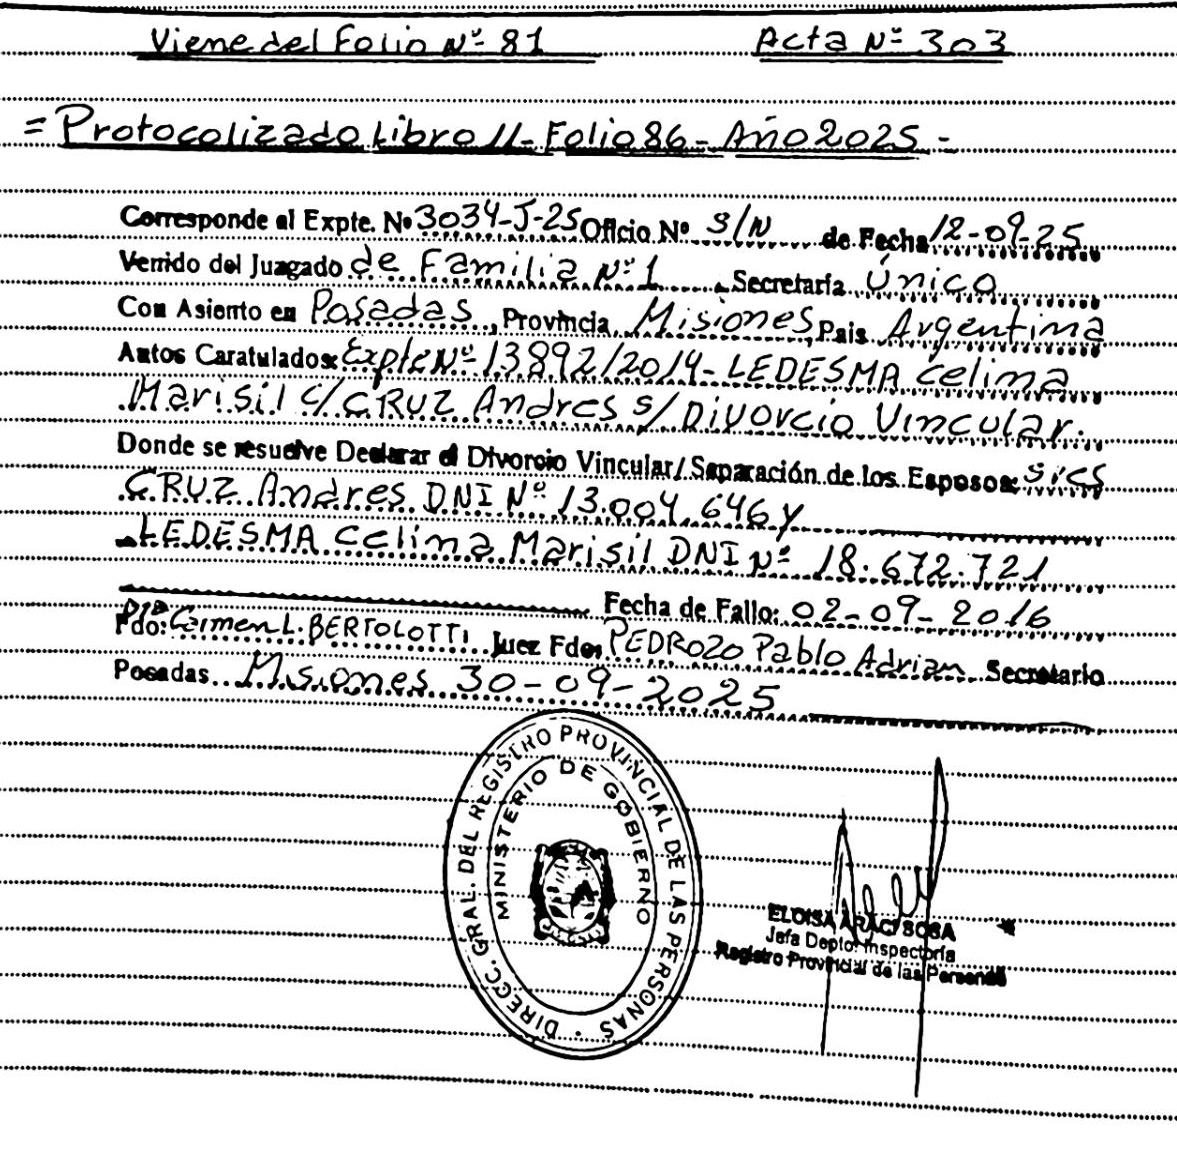 Viene del Folio Nº 81 Acta Nº 303
= Protocolizado Libro II - Folio 86 - Año 2025 -
Corresponde al Expte. Nº 3034-J-25 Oficio Nº S/N de Fecha 12-09-25
Venido del Juzgado de Familia Nº 1 Secretaría Única
Con Asiento en Posadas, Provincia Misiones, Pais Argentina
Autos Caratulados: Expte Nº 13892/2014 - LEDESMA Celima
Marisil c/ CRUZ Andres s/ Divorcio Vincular.
Donde se resuelve Declarar el Divorcio Vincular/Separación de los Esposos: Sres
CRUZ Andres DNI Nº 13.004.646 y
LEDESMA Celima Marisil DNI Nº 18.672.721
Fecha de Fallo: 02-09-2016
Fdo: Dra Carmen L. BERTOLOTTI Juez Fdo: PEDROZO Pablo Adrian Secretario
Posadas Misiones 30-09-2025
DIRECC. GRAL. DEL REGISTRO PROVINCIAL DE LAS PERSONAS
MINISTERIO DE GOBIERNO
ELOISA ARACI SOSA
Jefa Depto. Inspectoría
Registro Provincial de las Personas